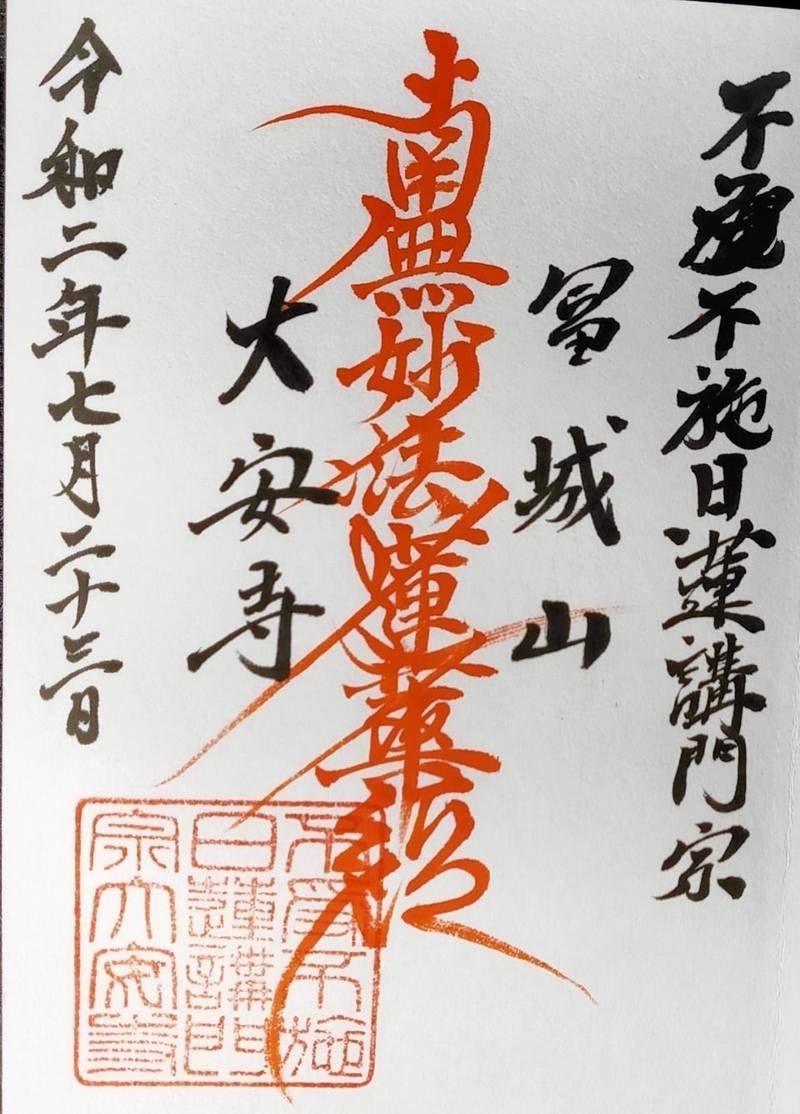 不受不施日蓮講門宗
冨城山
南無妙法蓮華経
大安寺
令和二年七月二十三日
不受不施
日蓮講門
宗大安寺